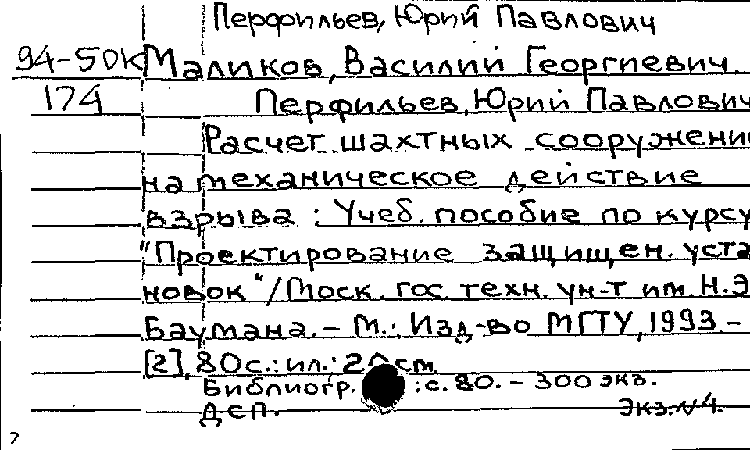 Перфильев, Юрий Павлович
94-50К Маликов, Василий Георгиевич.
174 Перфильев, Юрий Павлович
Расчет шахтных сооружени
на механическое действие
взрыва : Учеб. пособие по курсу
"Проектирование защищен. уста
новок"/Моск. гос. техн. ун-т им. Н.Э.
Баумана. – М.: Изд-во МГТУ, 1993. –
[2], 80с.: ил.; 20см.
Библиогр. : с. 80. – 300 экз.
ДСП. Экз. N4.